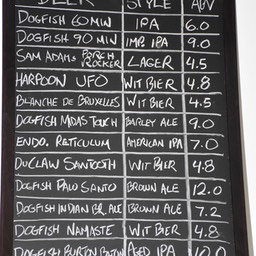 BEER STYLE ABV
DOGFISH 60 MIN IPA 6.0
DOGFISH 90 MIN IMP. IPA 9.0
SAM ADAMS PORCH ROCKER LAGER 4.5
HARPOON UFO WIT BIER 4.8
BLANCHE DE BRUXELLES WIT BIER 4.5
DOGFISH MIDAS TOUCH BARLEY ALE 9.0
ENDO. RETICULUM AMERICAN IPA 7.0
DUCLAW SANTOOTH WIT BIER 4.8
DOGFISH PALO SANTO BROWN ALE 12.0
DOGFISH INDIAN BR. ALE BROWN ALE 7.2
DOGFISH NAMASTE WIT BIER 4.8
DOGFISH BURTON AGED IPA 10.0